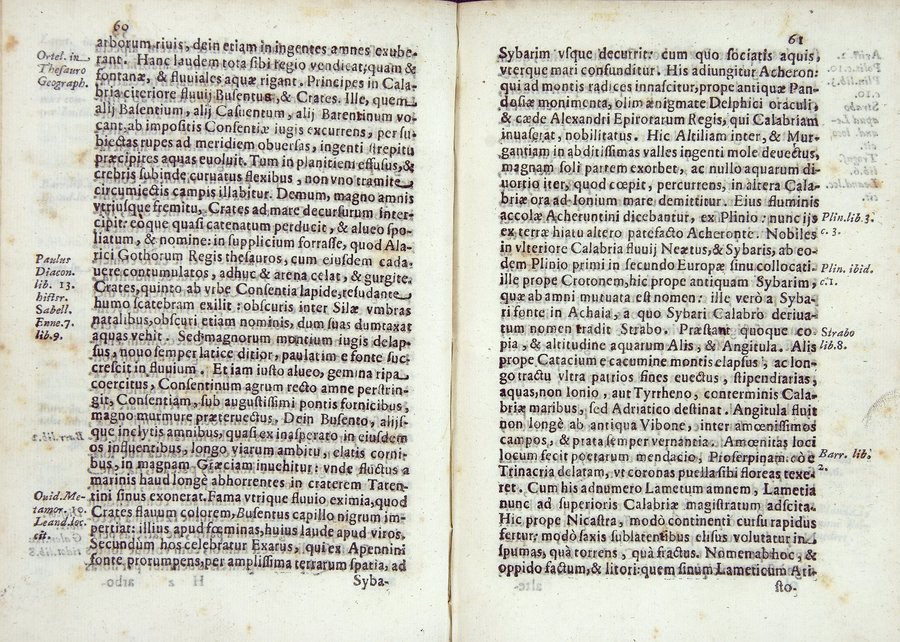 60
Ortel. in
Thesauro
Geograph.
arborum riuis, dein etiam in ingentes amnes exube-
rant. Hanc laudem tota sibi regio vendicat; quam &
fontanæ, & fluuiales aquæ rigant. Principes in Cala-
bria citeriore fluuij Busentus, & Crates. Ille, quem
alij Basentium, alij Casuentum, alij Barentinum vo-
cant, ab impositis Consentiæ iugis excurrens, per su-
biectas rupes ad meridiem obuersas, ingenti strepitu
præcipites aquas euoluit. Tum in planitiem effusus, &
crebris subinde curuatus flexibus, non vno tramite
circumiectis campis illabitur. Demum, magno amnis
vtriusque fremitu, Crates ad mare decursurum inter-
cipit: eoque quasi catenatum perducit, & alueo spo-
liatum, & nomine: in supplicium forrasse, quod Ala-
rici Gothorum Regis thesauros, cum eiusdem cada-
uere contumulatos, adhuc & arena celat, & gurgite.
Crates, quinto ab vrbe Consentia lapide, resudante
humo scatebram exilit: obscuris inter Silæ vmbras
natalibus, obscuri etiam nominis, dum suas dumtaxat
aquas vehit. Sed magnorum montium iugis delap-
sus, nouo semper latice ditior, paulatim e fonte suc-
crescit in fluuium. Et iam iusto alueo, gemina ripa
coercitus, Consentinum agrum recto amne perstrin-
git, Consentiam, sub augustissimi pontis fornicibus,
magno murmure præteruectus. Dein Busento, alijs-
que inclytis amnibus, quasi ex inasperato in eiusdem
os influentibus, longo viarum ambitu, elatis corni-
bus, in magnam Græciam inuehitur: vnde fluctus a
marinis haud longè abhorrentes in craterem Taten-
tini sinus exonerat. Fama vtrique fluuio eximia, quod
Crates flauum colorem, Busentus capillo nigrum im-
pertiat: illius apud fœminas, huius laude apud viros.
Secundùm hos celebratur Exarus, qui ex Apennini
fonte protumpens, per amplissima terrarum spatia, ad
Paulus
Diacon.
lib. 13.
histor.
Sabell.
Enne. 7.
lib. 9.
Ouid. Me-
tamor. 10.
Leand. loc.
cit.
H 2
Syba-
61
Sybarim vsque decurrit: cum quo sociatis aquis,
vterque mari confunditur. His adiungitur Acheron:
qui ad montis radices innascitur, prope antiquæ Pan-
dosiæ monimenta, olim ænigmate Delphici oraculi,
& cæde Alexandri Epirotarum Regis, qui Calabriam
inuaserat, nobilitatus. Hic Altiliam inter, & Mur-
gantiam in abditissimas valles ingenti mole deuectus,
magnam soli partem exorbet, ac nullo aquarum di-
uortio iter, quod cœpit, percurrens, in altera Cala-
briæ ora ad Ionium mare demittitur. Eius fluminis
accolæ Acheruntini dicebantur, ex Plinio: nunc ijs
ex terræ hiatu altero patefacto Acheronte. Nobiles
in vlteriore Calabria fluuij Neætus, & Sybaris, ab eo-
dem Plinio primi in secundo Europæ sinu collocati.
ille prope Crotonem, hic prope antiquam Sybarim,
quæ ab amni mutuata est nomen: ille verò a Syba-
ri fonte in Achaia, a quo Sybari Calabro deriua-
tum nomen tradit Strabo. Præstant quoque co-
pia, & altitudine aquarum Alis, & Angitula. Alis
prope Catacium e cacumine montis elapsus, ac lon-
go tractu vltra patrios fines euectus, stipendiarias
aquas, non Ionio, aut Tyrrheno, conterminis Cala-
briæ maribus, sed Adriatico destinat. Angitula fluit
non longè ab antiqua Vibone, inter amœnissimos
campos, & prata semper vernantia. Amœnitas loci
locum fecit poetarum mendacio, Proserpinam eòè
Trinacria delatam, vt coronas puella sibi floreas texe-
ret. Cum his adnumero Lametum amnem, Lametia
nunc ad superioris Calabriæ magistratum adscita.
Hic prope Nicastra, modò continenti cursu rapidus
fertur: modò saxis sublatentibus elisus volutatur in
spumas, quà torrens, quà fractus. Nomen ab hoc, &
oppido factum, & litori: quem sinum Lameticum Ari-
Plin. lib. 3.
c. 3.
Plin. ibid.
c. 1.
Strabo
lib. 8.
Barr. lib.
2.
sto-